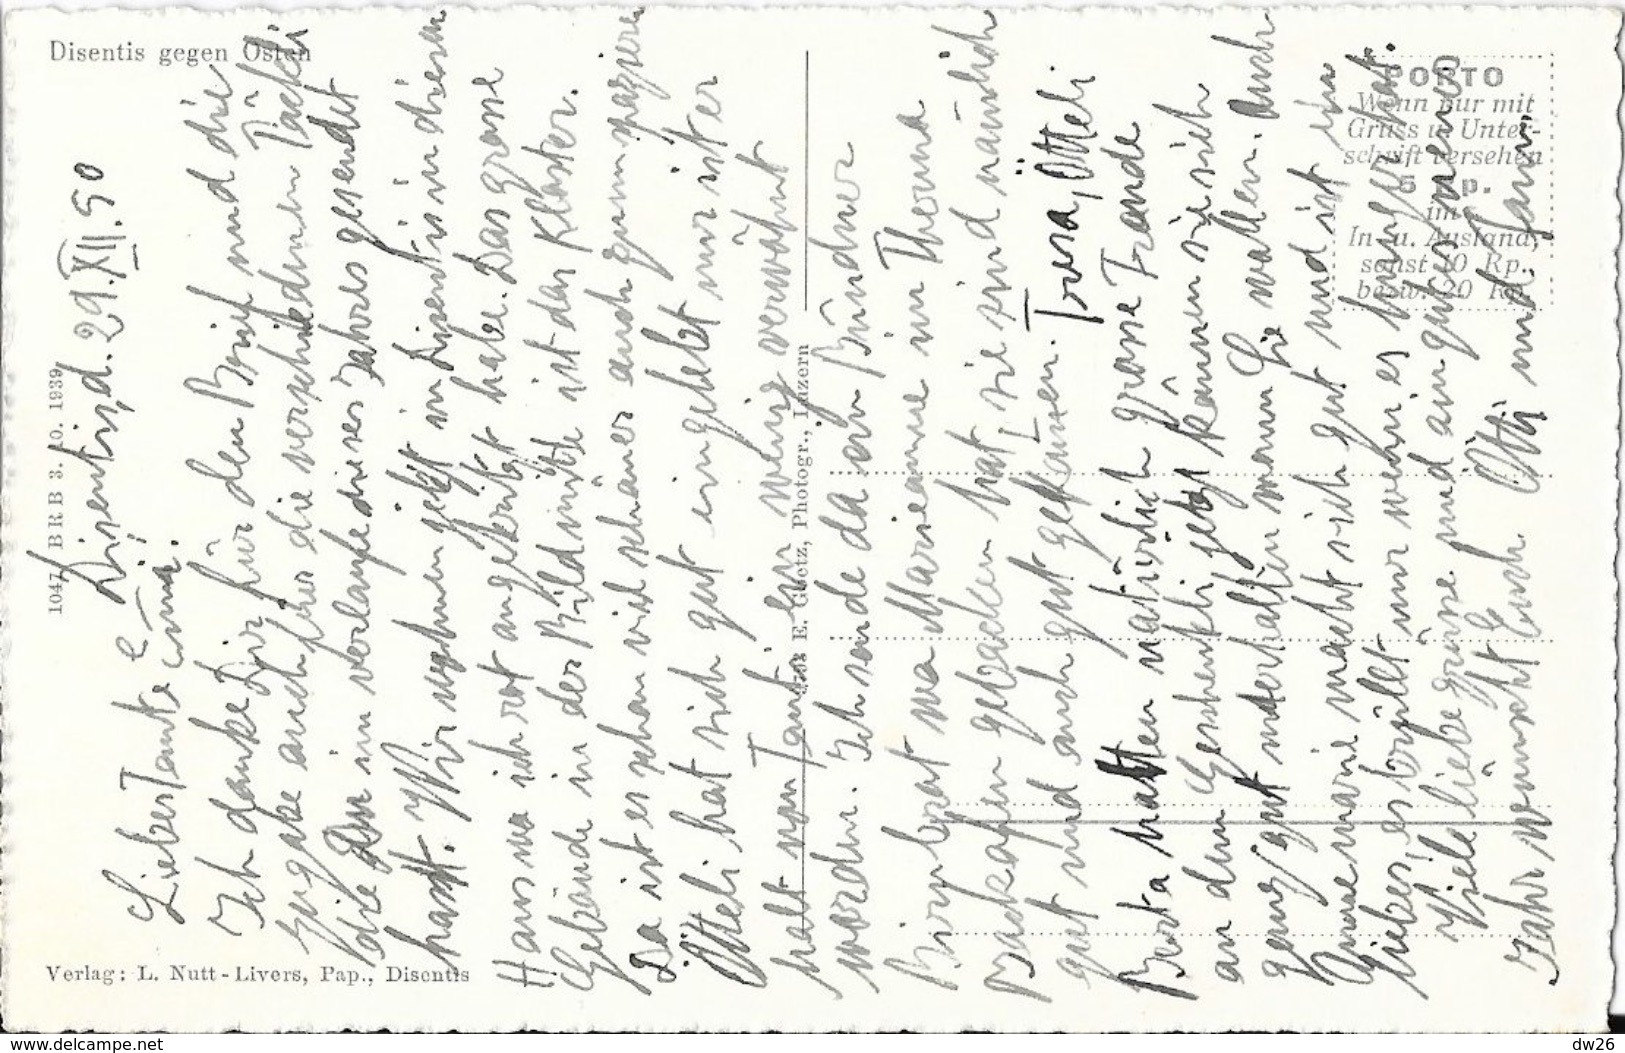 Disentis gegen Osten
1047 BRB 3. 10. 1939
Verlag: L. Nutt-Livers, Pap., Disentis
E. Goetz, Photogr., Luzern
PORTO
Wenn nur mit
Gruss u Unter-
schrift versehen
5 Rp.
im
In- u. Ausland,
sonst 10 Rp.,
bezw. 20 Rp.
Disentis, d. 29. XII. 50
Liebe Tante Emmi.
Ich danke Dir für den Brief und die
Zugabe auch für die verschiedenen Päckli
die Du im verlaufe dieses Jahres gesendet
hast. Wir wohnen jetzt in Disentis in diesem
Haus wo ich rot angekritzt habe. Das grosse
Gebäude in der Bildmitte ist das Kloster.
Da ist es schon viel schöner auch zum spazieren
Ötteli hat sich gut eingelebt nur ist er
halt von Tanti ein wenig verwöhnt
worden. Ich sende da ein Bündner
Birnbrot wo Marieanne im Thoma
Backofen gebacken hat sie sind nämlich
gut und auch gut gekommen. Tresa, Ötteli
Berta hatten natürlich grosse Freude
an dem Geschenkli jetzt können sie sich
ganz gut unterhalten wenn Sie wollen. Auch
Annemarie macht sich gut und ist ein
liebes es brüllt nur wenn es hunger hat.
Viele liebe Grüsse und ein gutes neues
Jahr wünscht Euch Otti und Fam.
www.delcampe.net
dw26